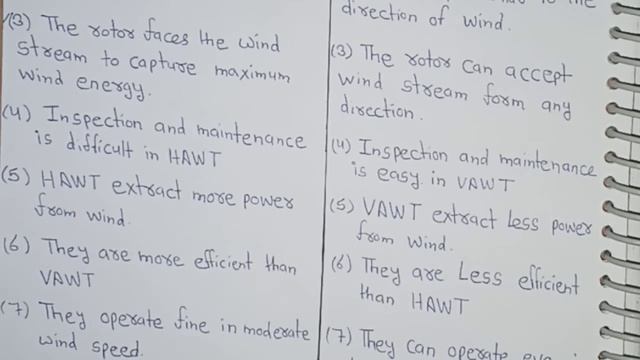 (3) The rotor faces the wind
stream to capture maximum
wind energy.
(4) Inspection and maintenance
is difficult in HAWT
(5) HAWT extract more power
from wind.
(6) They are more efficient than
VAWT
(7) They operate fine in moderate
wind speed.
the
direction of wind.
(3) The rotor can accept
wind stream form any
direction.
(4) Inspection and maintenance
is easy in VAWT
(5) VAWT extract Less power
from wind.
(6) They are Less efficient
than HAWT
(7) They can operate